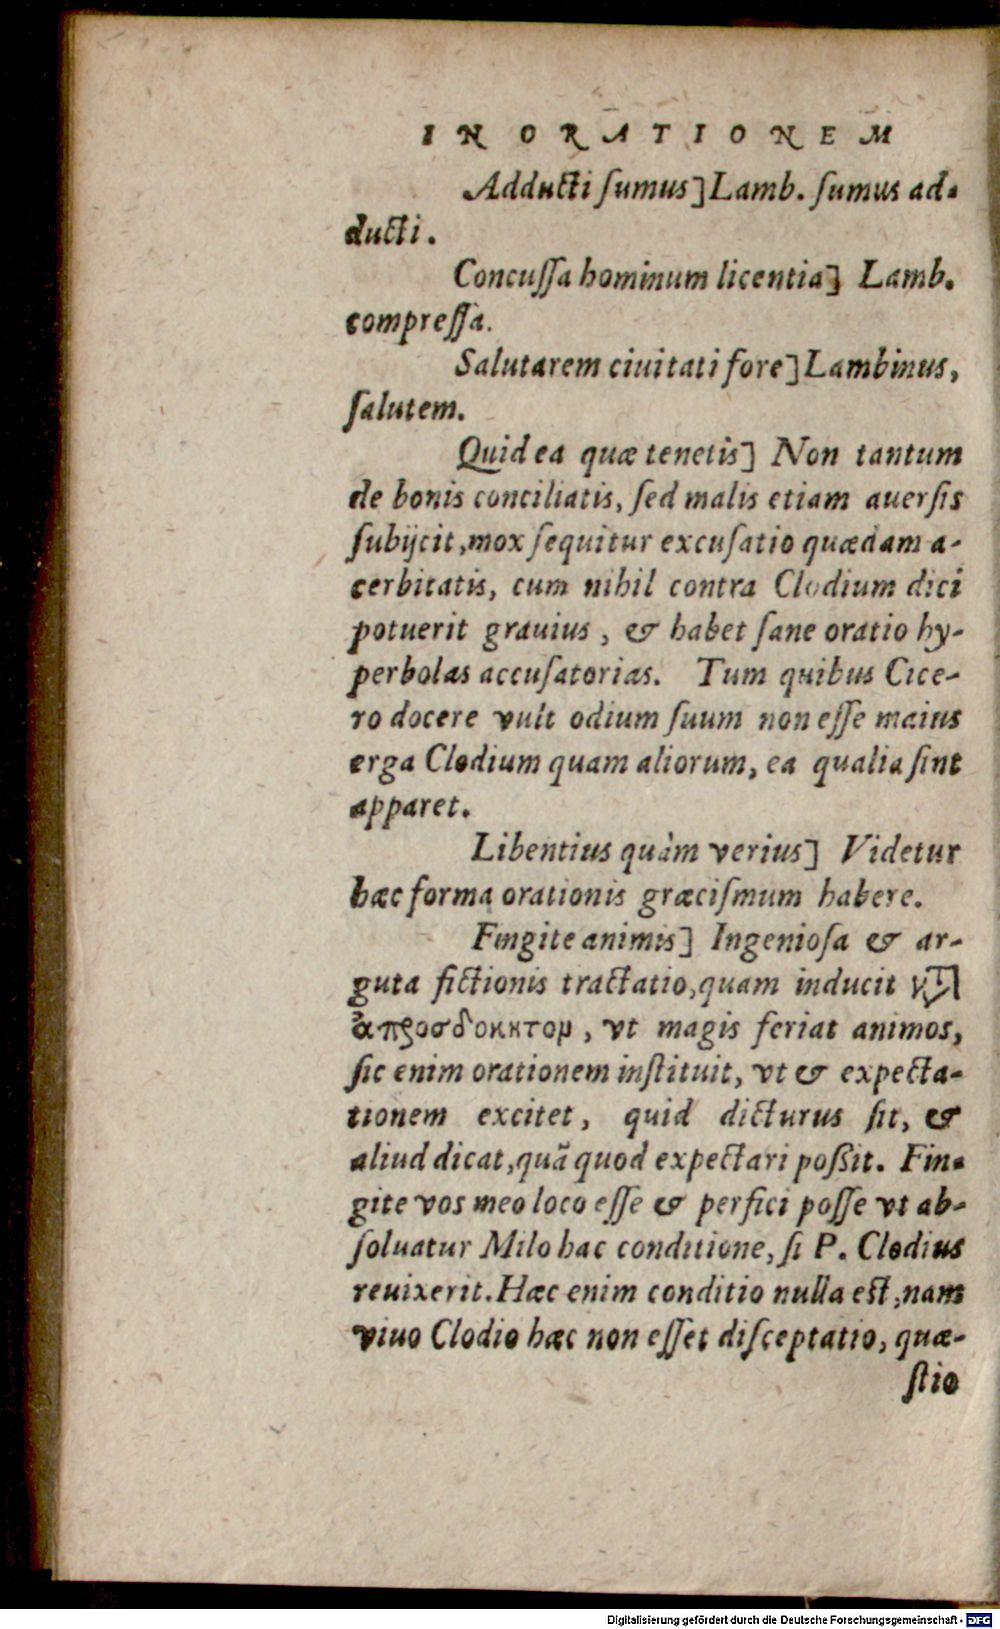 IN ORATIONEM
Adducti ſumus] Lamb. ſumus ad-
ducti.
Concuſſa hominum licentia] Lamb.
compreſſa.
Salutarem ciuitati fore] Lambinus,
ſalutem.
Quid ea quæ tenetis] Non tantum
de bonis conciliatis, ſed malis etiam auerſis
ſubijcit, mox ſequitur excuſatio quædam a-
cerbitatis, cum nihil contra Clodium dici
potuerit grauius, & habet ſane oratio hy-
perbolas accuſatorias. Tum quibus Cice-
ro docere vult odium ſuum non eſſe maius
erga Clodium quam aliorum, ea qualia ſint
apparet.
Libentius quàm verius] Videtur
hæc forma orationis græciſmum habere.
Fingite animis] Ingenioſa & ar-
guta fictionis tractatio, quam inducit
ἀπροσδοκητομ, vt magis feriat animos,
ſic enim orationem inſtituit, vt & expecta-
tionem excitet, quid dicturus ſit, &
aliud dicat, quã quod expectari poßit. Fin-
gite vos meo loco eſſe & perfici poſſe vt ab-
ſoluatur Milo hac conditione, ſi P. Clodius
reuixerit. Hæc enim conditio nulla est, nam
viuo Clodio hæc non eſſet diſceptatio, quæ-
ſtio
Digitalisierung gefördert durch die Deutsche Forschungsgemeinschaft - DFG